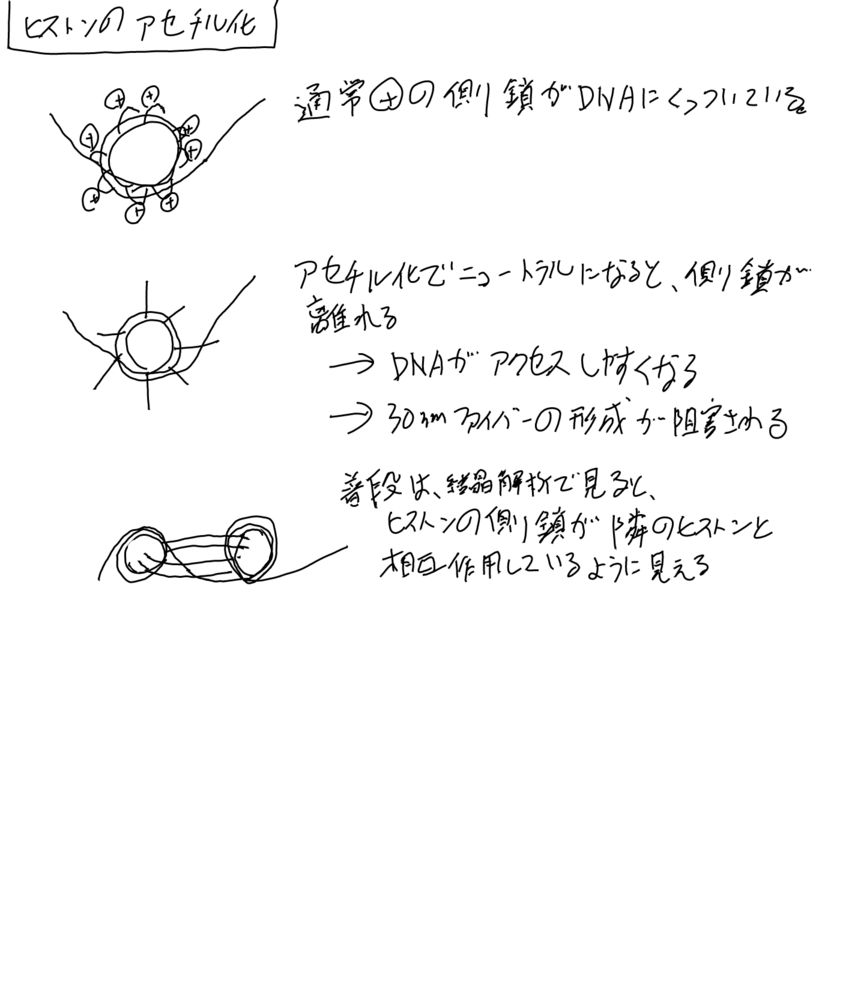 ヒストンのアセチル化
通常⊕の側鎖がDNAにくっついている
アセチル化でニュートラルになると、側鎖が
離れる
→ DNAがアクセスしやすくなる
→ 30nmファイバーの形成が阻害される
普段は、結晶解析で見ると、
ヒストンの側鎖が隣のヒストンと
相互作用しているように見える